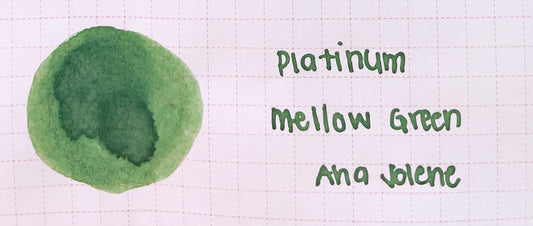 Platinum
Mellow Green
Ana Jolene